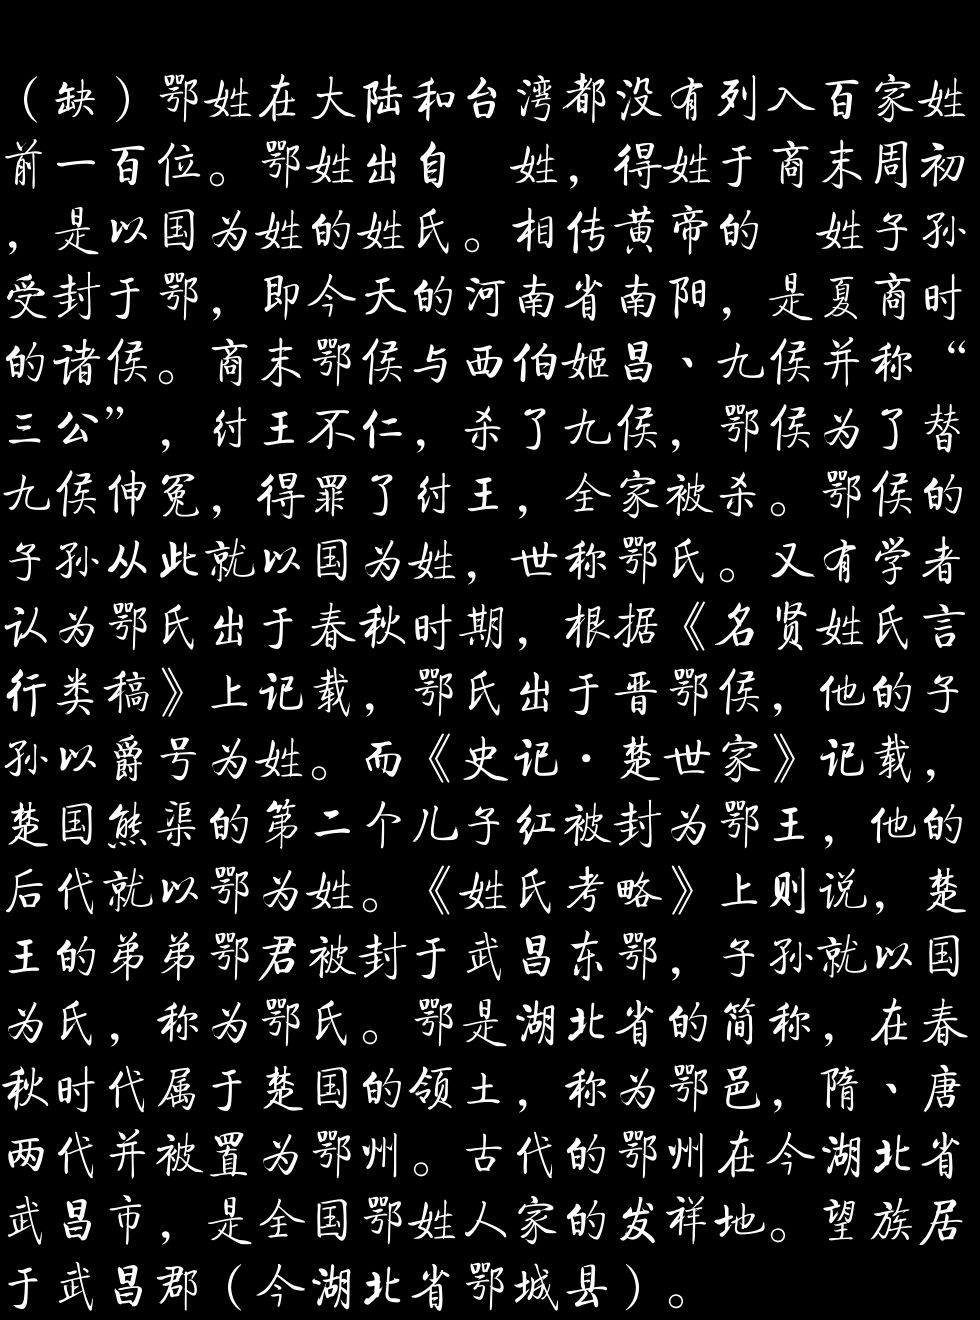 （缺）鄂姓在大陆和台湾都没有列入百家姓
前一百位。鄂姓出自　姓，得姓于商末周初
，是以国为姓的姓氏。相传黄帝的　姓子孙
受封于鄂，即今天的河南省南阳，是夏商时
的诸侯。商末鄂侯与西伯姬昌、九侯并称“
三公”，纣王不仁，杀了九侯，鄂侯为了替
九侯伸冤，得罪了纣王，全家被杀。鄂侯的
子孙从此就以国为姓，世称鄂氏。又有学者
认为鄂氏出于春秋时期，根据《名贤姓氏言
行类稿》上记载，鄂氏出于晋鄂侯，他的子
孙以爵号为姓。而《史记·楚世家》记载，
楚国熊渠的第二个儿子红被封为鄂王，他的
后代就以鄂为姓。《姓氏考略》上则说，楚
王的弟弟鄂君被封于武昌东鄂，子孙就以国
为氏，称为鄂氏。鄂是湖北省的简称，在春
秋时代属于楚国的领土，称为鄂邑，隋、唐
两代并被置为鄂州。古代的鄂州在今湖北省
武昌市，是全国鄂姓人家的发祥地。望族居
于武昌郡（今湖北省鄂城县）。